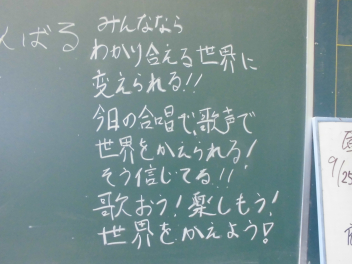 んばる
みんななら
わかり合える世界に
変えられる!!
今日の合唱で、歌声で
世界をかえられる!
そう信じてる!!
歌おう!楽しもう!
世界をかえよう!
9/25